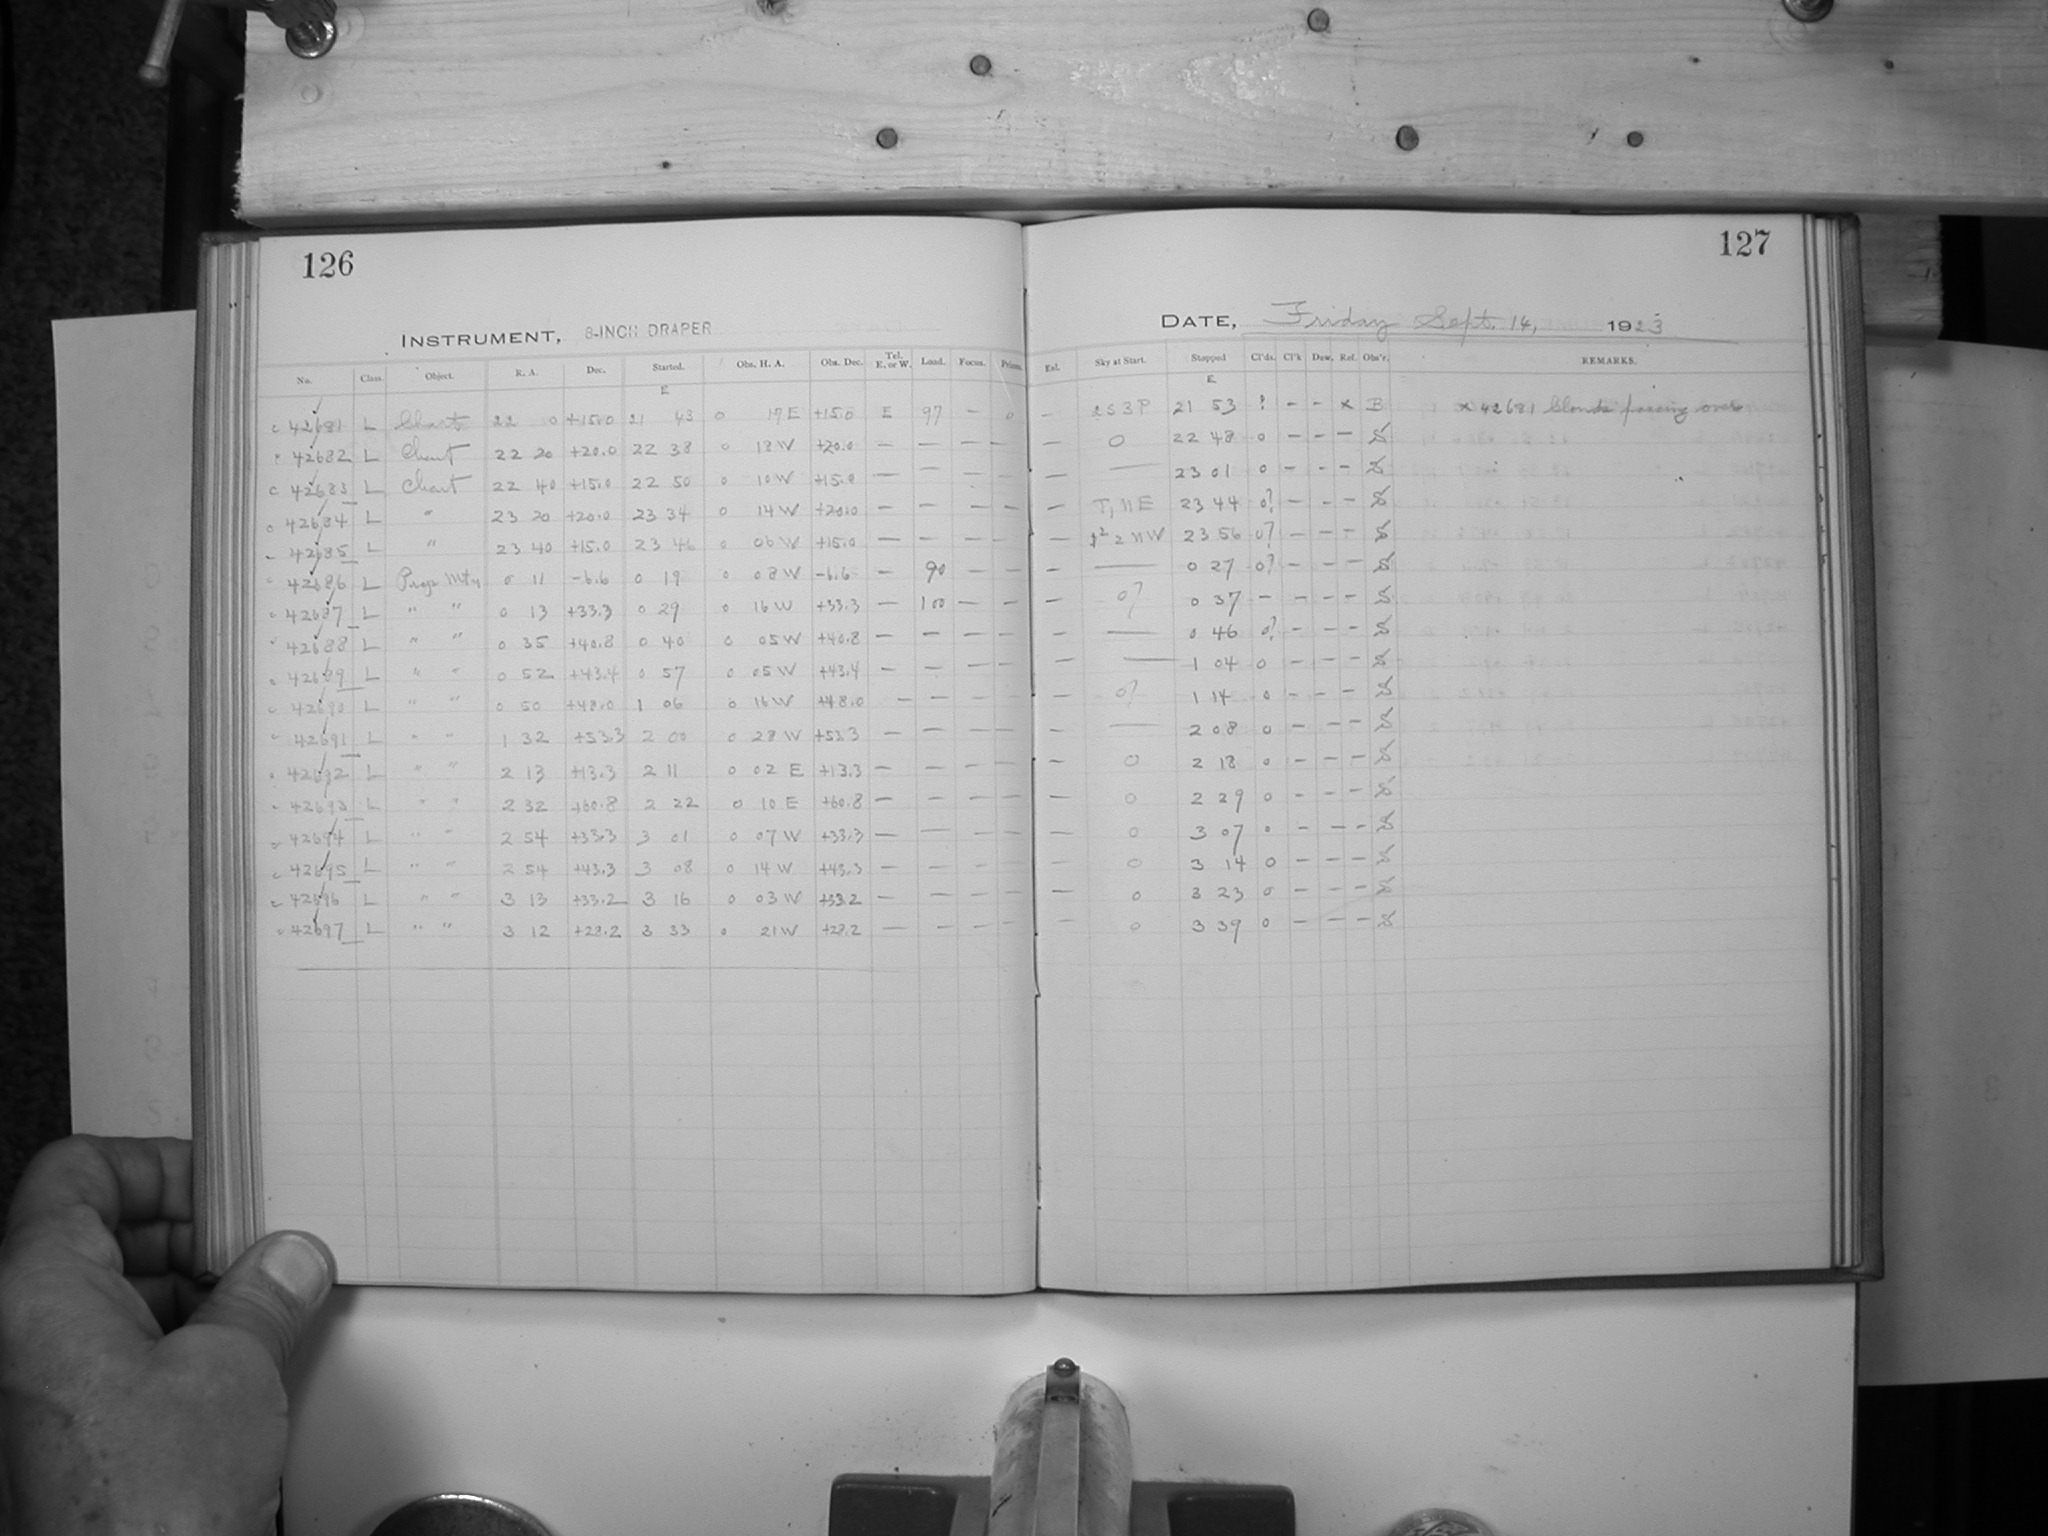 126
127
INSTRUMENT, 8-INCH DRAPER
DATE, Friday Sept. 14, 1923
No. Class. Object. R. A. Dec. Started. Obs. H. A. Obs. Dec. Tel. E. or W. Load. Focus. Prisms. Exl. Sky at Start. Stopped Cl'ds. Cl'k Dew. Ref. Obs'r. REMARKS.
E E
42681 L Chart 22 0 +15.0 21 43 0 17 E +15.0 E 97 — 0 — 2 S 3 P 21 53 ? - - x B x 42681 Clouds passing over
42682 L Chart 22 20 +20.0 22 38 0 18 W +20.0 — — — — — 0 22 48 0 - - -
42683 L Chart 22 40 +15.0 22 50 0 10 W +15.0 — — — — — — 23 01 0 - - -
42684 L " 23 20 +20.0 23 34 0 14 W +20.0 — — — — — 23 44 0? - - -
42685 L " 23 40 +15.0 23 46 0 06 W +15.0 — — — — — 23 56 0? - - -
42686 L 0 11 -6.6 0 19 0 08 W -6.6 — 90 — — — — 0 27 0? - - -
42687 L " " 0 13 +33.3 0 29 0 16 W +33.3 — 100 — — — 0? 0 37 - - - -
42688 L " " 0 35 +40.8 0 40 0 05 W +40.8 — — — — — — 0 46 0? - - -
42689 L " " 0 52 +43.4 0 57 0 05 W +43.4 — — — — — — 1 04 0 - - -
42690 L " " 0 50 +48.0 1 06 0 16 W +48.0 — — — — — 0? 1 14 0 - - -
42691 L " " 1 32 +53.3 2 00 0 28 W +53.3 — — — — — — 2 08 0 - - -
42692 L " " 2 13 +13.3 2 11 0 02 E +13.3 — — — — — 0 2 18 0 - - -
42693 L " " 2 32 +60.8 2 22 0 10 E +60.8 — — — — — 0 2 29 0 - - -
42694 L " " 2 54 +33.3 3 01 0 07 W +33.3 — — — — — 0 3 07 0 - - -
42695 L " " 2 54 +43.3 3 08 0 14 W +43.3 — — — — — 0 3 14 0 - - -
42696 L " " 3 13 +33.2 3 16 0 03 W +33.2 — — — — — 0 3 23 0 - - -
42697 L " " 3 12 +28.2 3 33 0 21 W +28.2 — — — — — 0 3 39 0 - - -